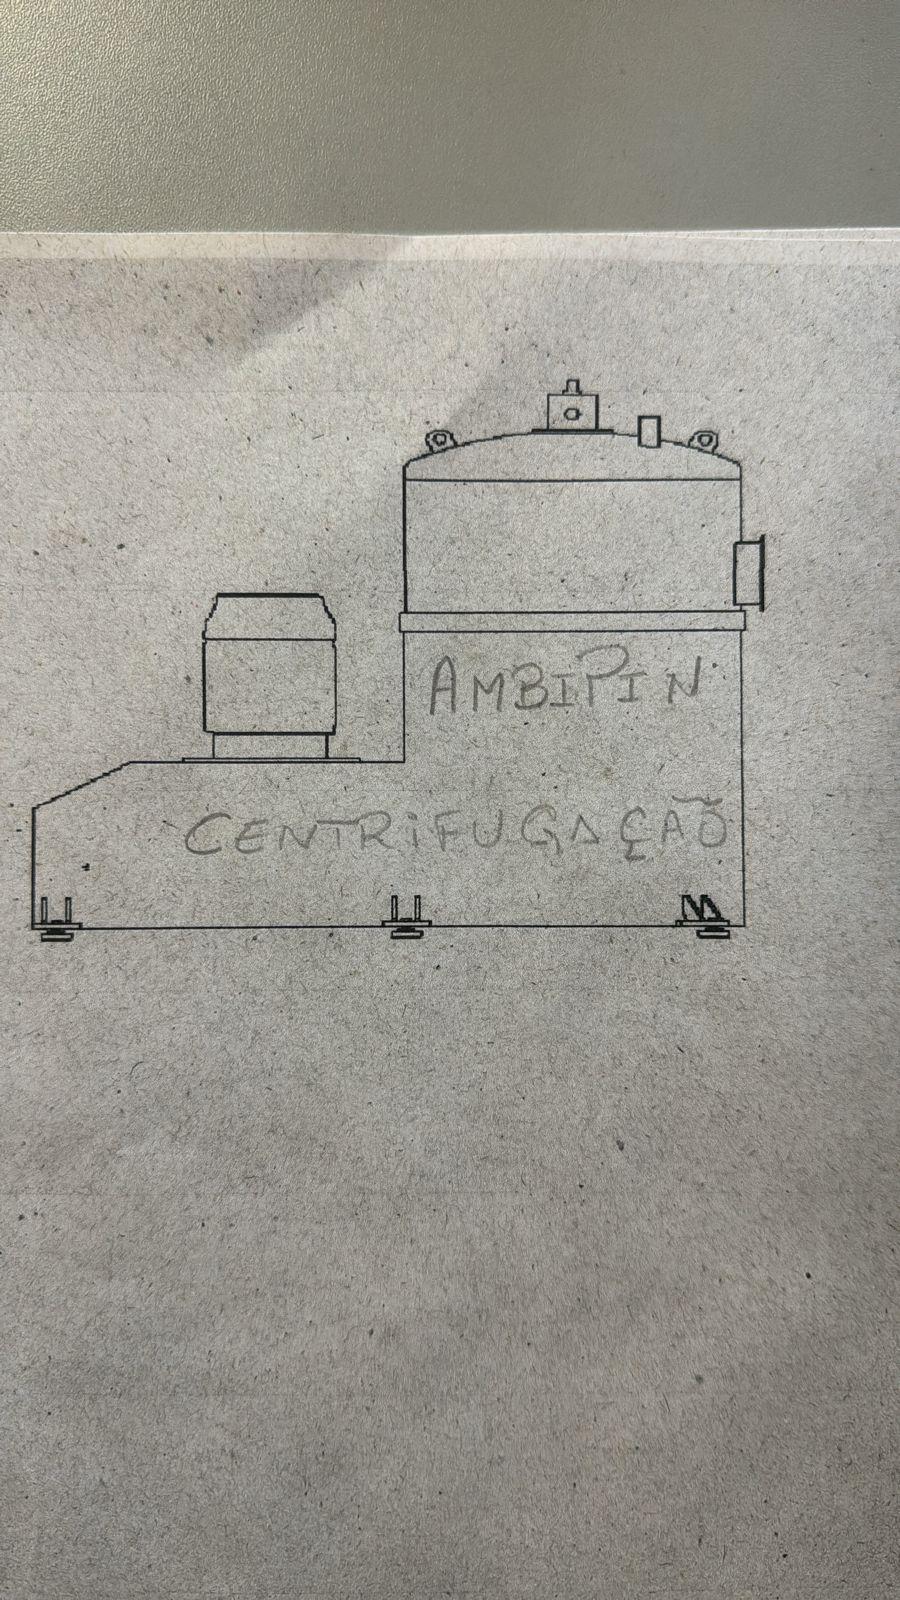 AMBIPIN
CENTRIFUGAÇÃO